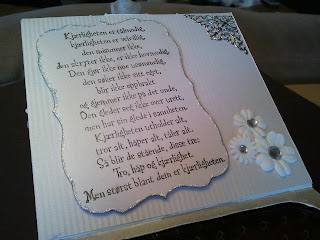 Kjærligheten er tålmodig,
kjærligheten er velvillig,
den misunner ikke,
den skryter ikke, er ikke hovmodig.
Den gjør ikke noe usømmelig,
den søker ikke sitt eget,
blir ikke oppbrakt
og gjemmer ikke på det onde.
Den gleder seg ikke over urett,
men har sin glede i sannheten.
Kjærligheten utholder alt,
tror alt, håper alt, tåler alt.
Så blir de stående, disse tre:
Tro, håp og kjærlighet.
Men størst blant dem er kjærligheten.